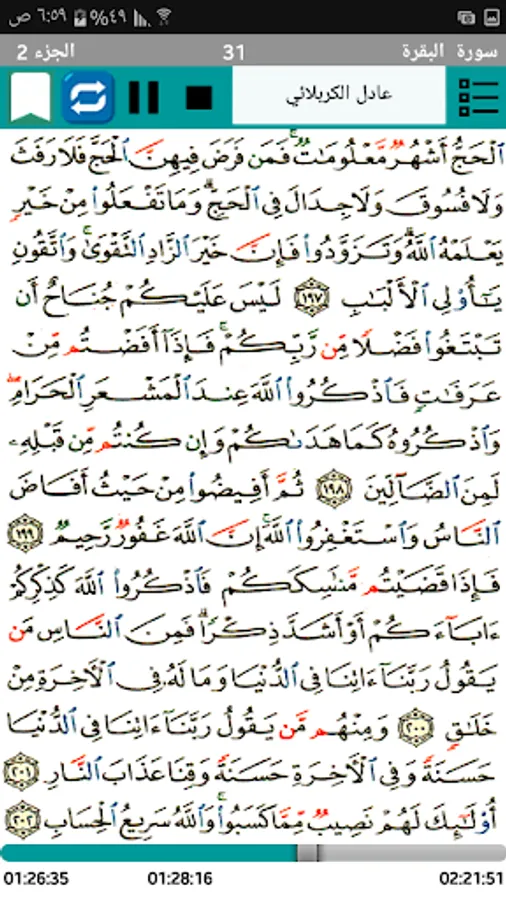 ٦:٥٩ ص ٤٩%
سورة البقرة 31 الجزء 2
عادل الكربلائي
ٱلْحَجُّ أَشْهُرٌ مَّعْلُومَٰتٌ ۚ فَمَن فَرَضَ فِيهِنَّ ٱلْحَجَّ فَلَا رَفَثَ
وَلَا فُسُوقَ وَلَا جِدَالَ فِى ٱلْحَجِّ ۗ وَمَا تَفْعَلُوا۟ مِنْ خَيْرٍ
يَعْلَمْهُ ٱللَّهُ ۗ وَتَزَوَّدُوا۟ فَإِنَّ خَيْرَ ٱلزَّادِ ٱلتَّقْوَىٰ ۚ وَٱتَّقُونِ
يَٰٓأُو۟لِى ٱلْأَلْبَٰبِ ١٩٧ لَيْسَ عَلَيْكُمْ جُنَاحٌ أَن
تَبْتَغُوا۟ فَضْلًا مِّن رَّبِّكُمْ ۚ فَإِذَآ أَفَضْتُم مِّنْ
عَرَفَٰتٍ فَٱذْكُرُوا۟ ٱللَّهَ عِندَ ٱلْمَشْعَرِ ٱلْحَرَامِ ۖ
وَٱذْكُرُوهُ كَمَا هَدَىٰكُمْ وَإِن كُنتُم مِّن قَبْلِهِۦ
لَمِنَ ٱلضَّآلِّينَ ١٩٨ ثُمَّ أَفِيضُوا۟ مِنْ حَيْثُ أَفَاضَ
ٱلنَّاسُ وَٱسْتَغْفِرُوا۟ ٱللَّهَ ۚ إِنَّ ٱللَّهَ غَفُورٌ رَّحِيمٌ ١٩٩
فَإِذَا قَضَيْتُم مَّنَٰسِكَكُمْ فَٱذْكُرُوا۟ ٱللَّهَ كَذِكْرِكُمْ
ءَابَآءَكُمْ أَوْ أَشَدَّ ذِكْرًا ۗ فَمِنَ ٱلنَّاسِ مَن
يَقُولُ رَبَّنَآ ءَاتِنَا فِى ٱلدُّنْيَا وَمَا لَهُۥ فِى ٱلْءَاخِرَةِ مِنْ
خَلَٰقٍ ٢٠٠ وَمِنْهُم مَّن يَقُولُ رَبَّنَآ ءَاتِنَا فِى ٱلدُّنْيَا
حَسَنَةً وَفِى ٱلْءَاخِرَةِ حَسَنَةً وَقِنَا عَذَابَ ٱلنَّارِ ٢٠١
أُو۟لَٰٓئِكَ لَهُمْ نَصِيبٌ مِّمَّا كَسَبُوا۟ ۚ وَٱللَّهُ سَرِيعُ ٱلْحِسَابِ ٢٠٢
01:26:35 01:28:16 02:21:51